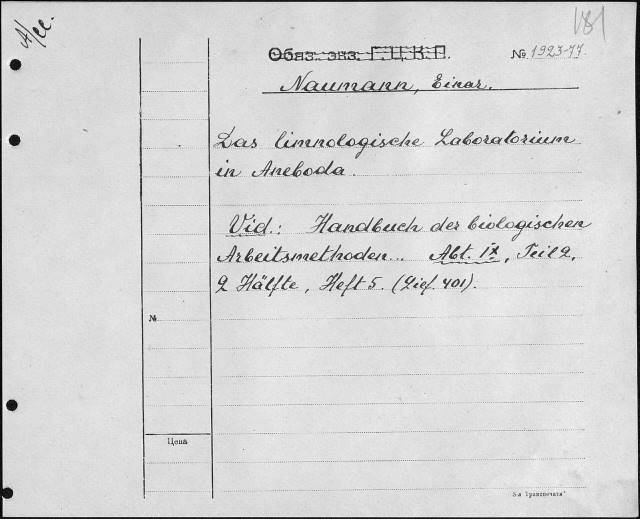 A/cc.
181
Обяз. экз. Г.Ц.К.П. № 1923-77.
Naumann, Einar.
Das limnologische Laboratorium
in Aneboda.
Vid.: Handbuch der biologischen
Arbeitsmethoden... Abt. IX, Teil 2,
2 Hälfte, Heft 5. (Lief. 401).
№
Цена
5-я Транспечать"